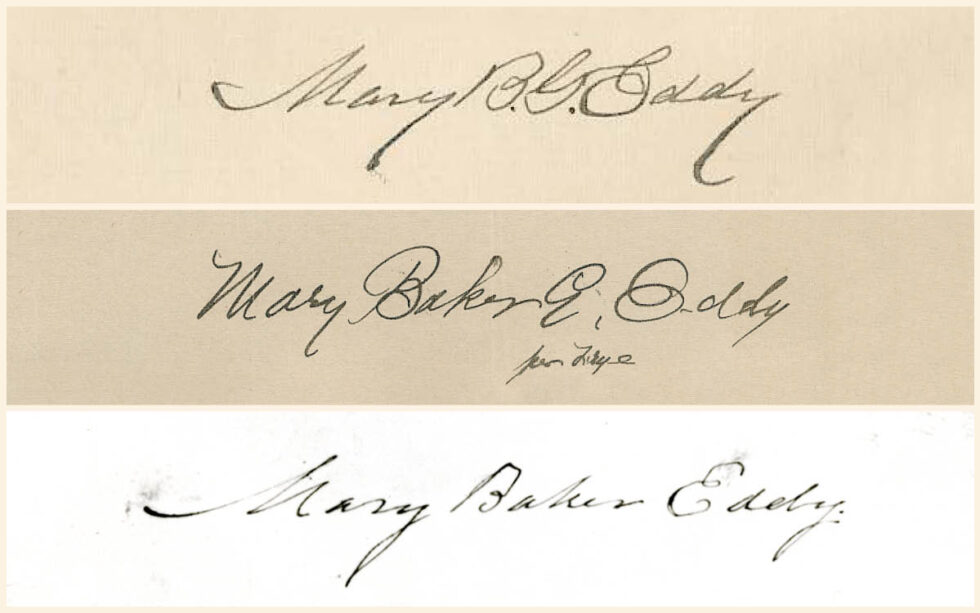 Mary B. G. Eddy
Mary Baker G. Eddy
per Frye
Mary Baker Eddy.